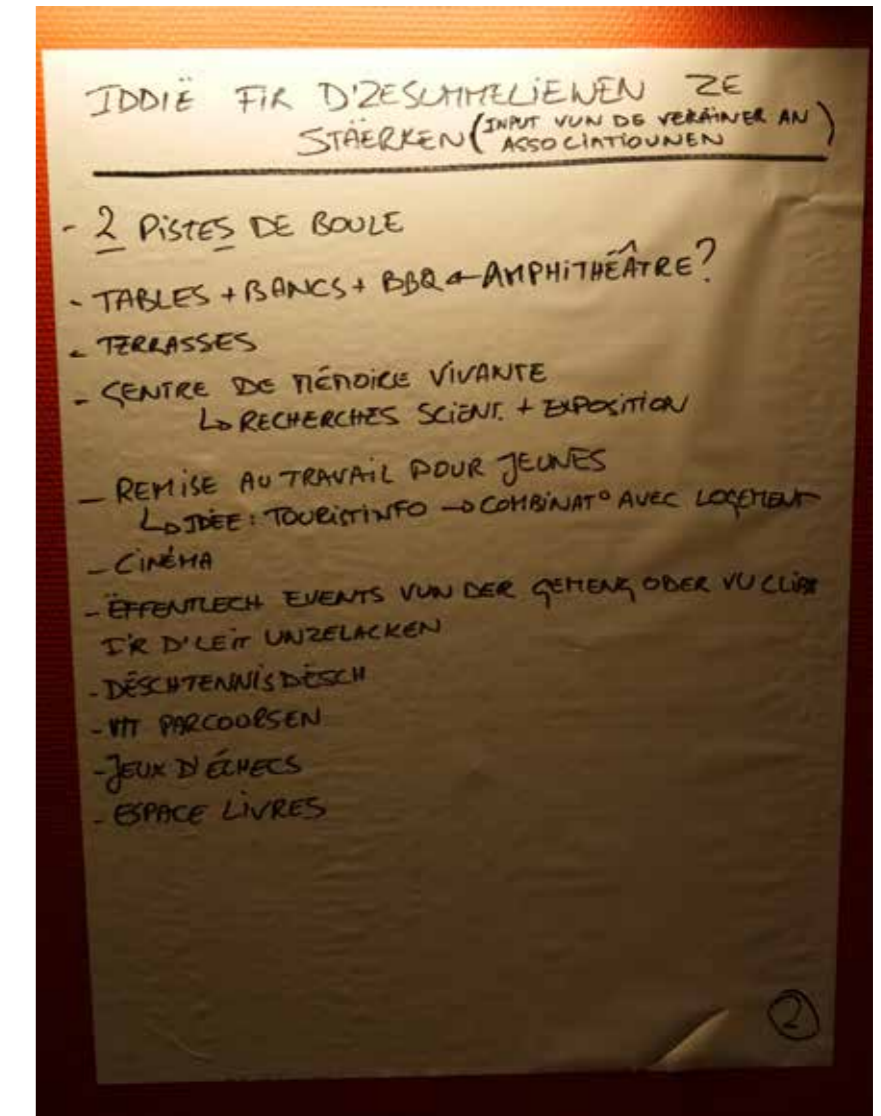 IDDIË FIR D'ZESUMMELIEWEN ZE
STÄERKEN (INPUT VUN DE VERÄINER AN
ASSOCIATIOUNEN)
- 2 PISTES DE BOULE
- TABLES + BANCS + BBQ ← AMPHITHÉÂTRE?
- TERRASSES
- CENTRE DE MÉMOIRE VIVANTE
↳ RECHERCHES SCIENT. + EXPOSITION
- REMISE AU TRAVAIL POUR JEUNES
↳ IDÉE: TOURISTINFO → COMBINAT° AVEC LOGEMENT
- CINÉMA
- ËFFENTLECH EVENTS VUN DER GEMENG ODER VU
D'LEIT UNZELACKEN
- DËSCHTENNISDËSCH
- PARCOURSEN
- JEUX D'ÉCHECS
- ESPACE LIVRES
2